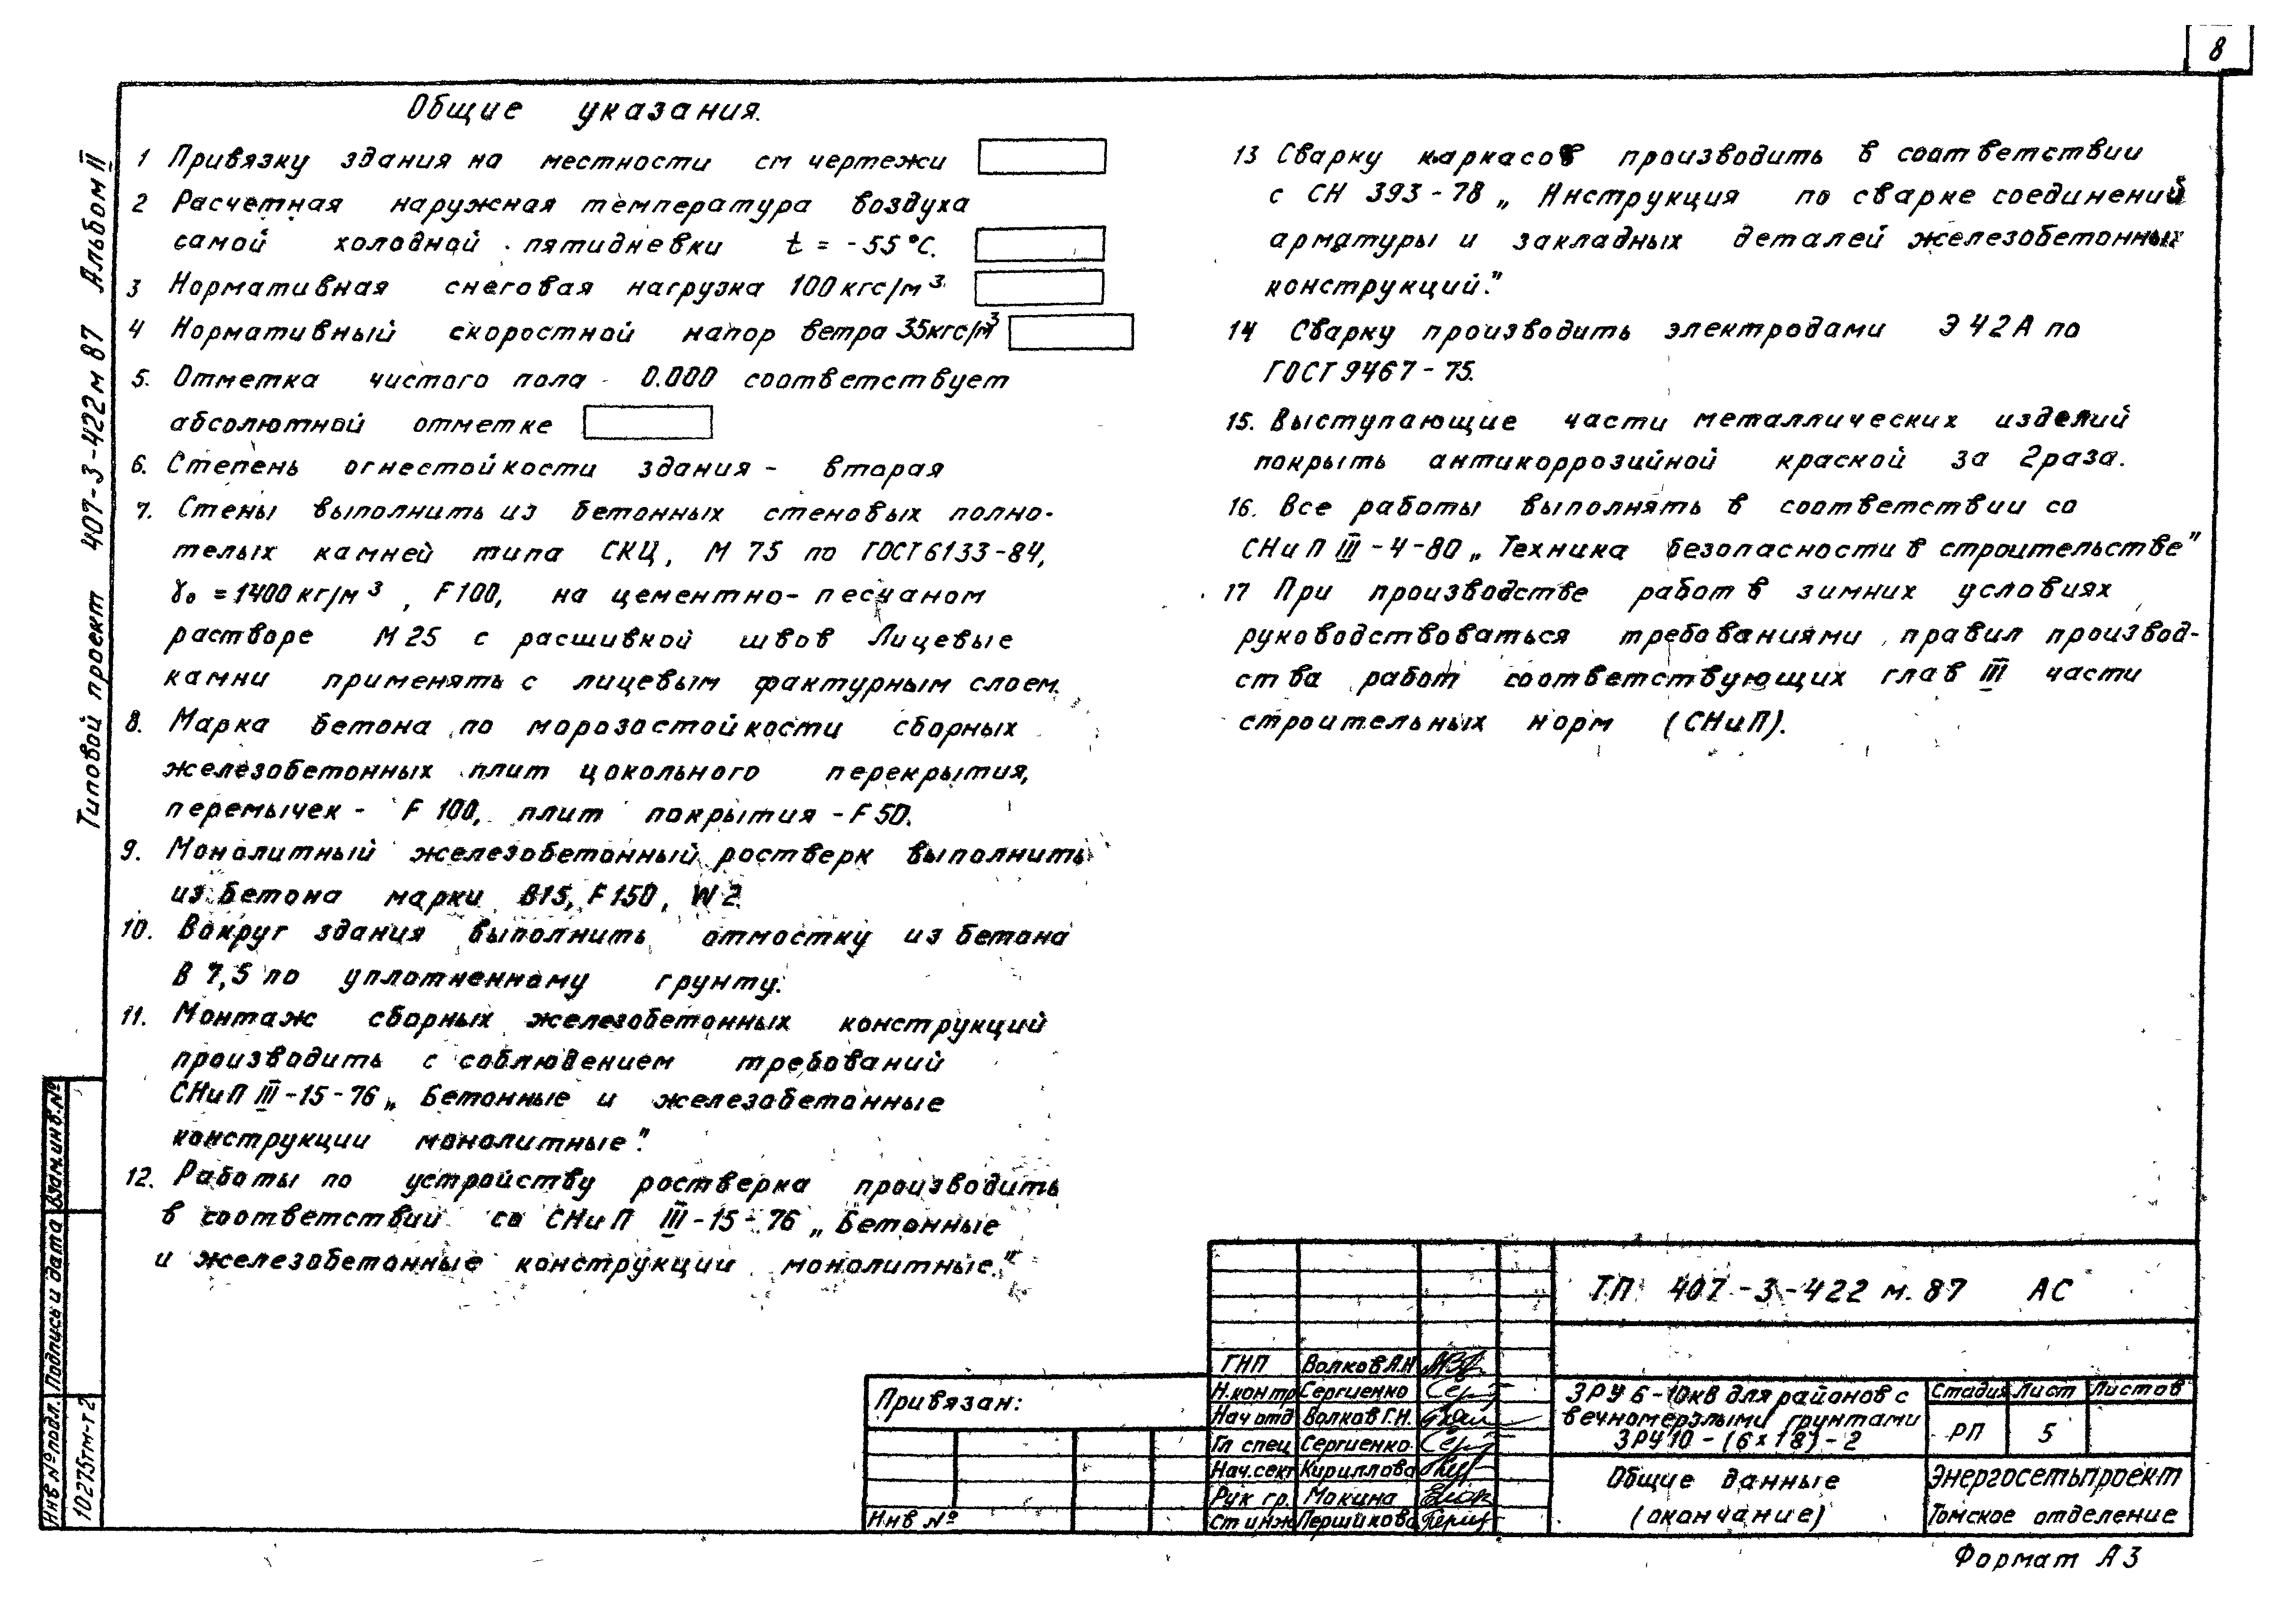 8
Общие указания.
1 Привязку здания на местности см чертежи
2 Расчетная наружная температура воздуха
самой холодной пятидневки t = -55°С.
3 Нормативная снеговая нагрузка 100кгс/м³
4 Нормативный скоростной напор ветра 35кгс/м³
5. Отметка чистого пола 0.000 соответствует
абсолютной отметке
6. Степень огнестойкости здания - вторая
7. Стены выполнить из бетонных стеновых полно-
телых камней типа СКЦ, М 75 по ГОСТ 6133-84,
γ₀ = 1400 кг/м³, F100, на цементно-песчаном
растворе М25 с расшивкой швов Лицевые
камни применять с лицевым фактурным слоем.
8. Марка бетона по морозостойкости сборных
железобетонных плит цокольного перекрытия,
перемычек - F 100, плит покрытия - F50.
9. Монолитный железобетонный ростверк выполнить
из бетона марки В15, F150, W2
10. Вокруг здания выполнить отмостку из бетона
В 7,5 по уплотненному грунту.
11. Монтаж сборных железобетонных конструкций
производить с соблюдением требований
СНиП III-15-76 „Бетонные и железобетонные
конструкции монолитные".
12. Работы по устройству ростверка производить
в соответствии со СНиП III-15-76 „Бетонные
и железобетонные конструкции монолитные."
13 Сварку каркасов производить в соответствии
с СН 393-78 „Инструкция по сварке соединений
арматуры и закладных деталей железобетонных
конструкций."
14 Сварку производить электродами Э42А по
ГОСТ 9467-75.
15. Выступающие части металлических изделий
покрыть антикоррозийной краской за 2 раза.
16. Все работы выполнять в соответствии со
СНиП III-4-80 „Техника безопасности в строительстве"
17 При производстве работ в зимних условиях
руководствоваться требованиями правил производ-
ства работ соответствующих глав III части
строительных норм (СНиП).
Типовой проект 407-3-422м87 Альбом II
Взам.инв.№
Подпись и дата
Инв №подл.
10275тм-т2
Привязан:
Инв №
ГИП Волков А.Н
Н.контр Сергиенко
Нач отд Волков Г.Н.
Гл спец Сергиенко
Нач.сект Кириллова
Рук гр. Мокина
Ст инж Першикова
ТП 407-3-422 м.87 АС
ЗРУ 6-10кВ для районов с
вечномерзлыми грунтами
ЗРУ10-(6×18)-2
Стадия Лист Листов
РП 5
Общие данные
(окончание)
Энергосетьпроект
Томское отделение
Формат А3